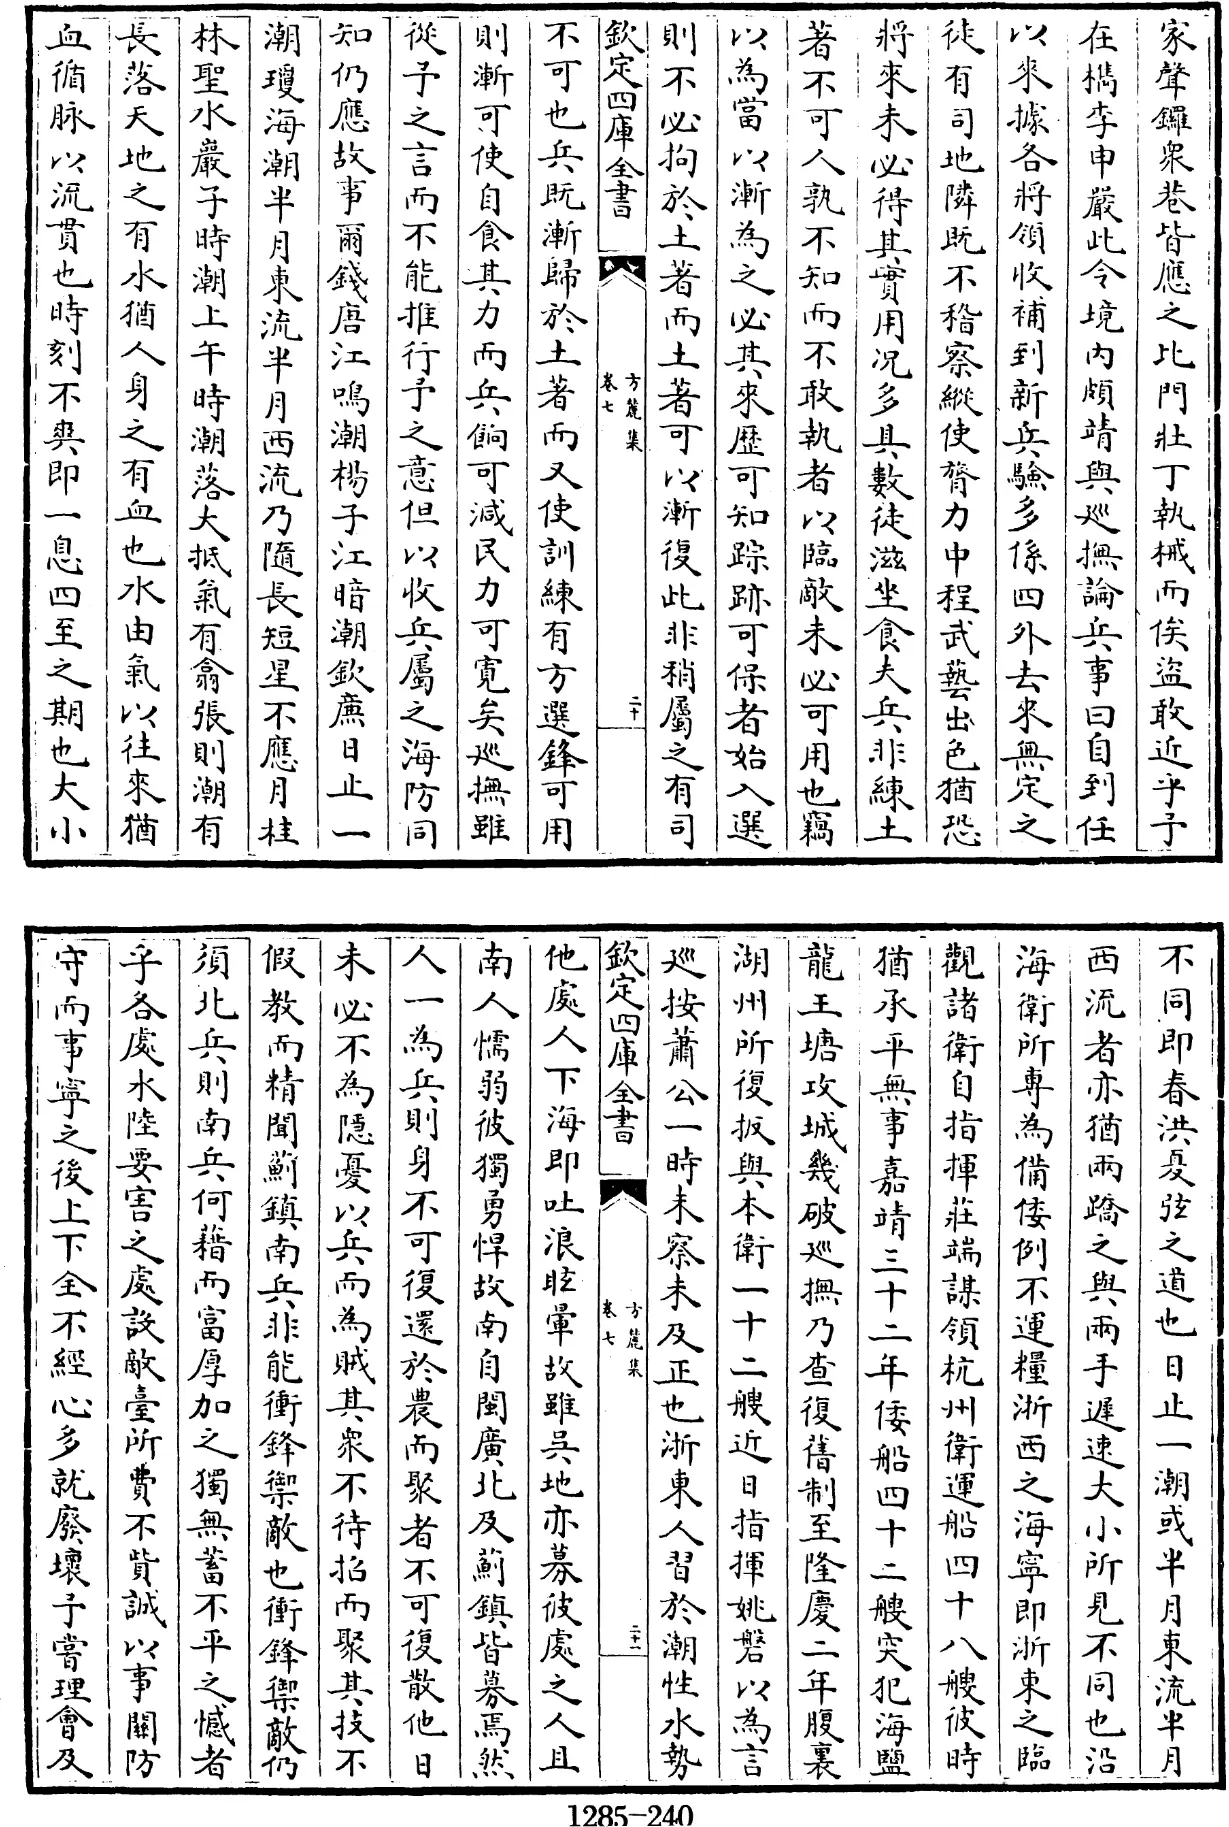 家聲鑼衆巷皆應之比門壯丁執械而俟盜敢近乎予
在檇李申嚴此令境内頗靖與廵撫論兵事曰自到任
以來據各將領收補到新兵驗多係四外去來無定之
徒有司地隣既不稽察縱使膂力中程武藝出色猶恐
將來未必得其實用况多其數徒滋坐食夫兵非練土
著不可人孰不知而不敢執者以臨敵未必可用也竊
以為當以漸為之必其來歴可知踪跡可保者始入選
則不必拘於土著而土著可以漸復此非稍屬之有司
欽定四庫全書
方麓集
卷七
二十
不可也兵既漸歸於土著而又使訓練有方選鋒可用
則漸可使自食其力而兵餉可減民力可寛矣廵撫雖
從予之言而不能推行予之意但以收兵屬之海防同
知仍應故事爾錢唐江鳴潮楊子江暗潮欽廉日止一
潮瓊海潮半月東流半月西流乃隨長短星不應月桂
林聖水巖子時潮上午時潮落大抵氣有翕張則潮有
長落天地之有水猶人身之有血也水由氣以往來猶
血循脉以流貫也時刻不爽即一息四至之期也大小
不同即春洪夏弦之道也日止一潮或半月東流半月
西流者亦猶兩蹻之與兩手遲速大小所見不同也沿
海衛所專為備倭例不運糧浙西之海寧即浙東之臨
觀諸衛自指揮莊端謀領杭州衛運船四十八艘彼時
猶承平無事嘉靖三十二年倭船四十二艘突犯海鹽
龍王塘攻城幾破廵撫乃查復舊制至隆慶二年腹裏
湖州所復扳與本衛一十二艘近日指揮姚磐以為言
廵按蕭公一時未察未及正也浙東人習於潮性水勢
欽定四庫全書
方麓集
卷七
二十一
他處人下海即吐浪眩暈故雖吳地亦募彼處之人且
南人懦弱彼獨勇悍故南自閩廣北及薊鎮皆募焉然
人一為兵則身不可復還於農而聚者不可復散他日
未必不為隱憂以兵而為賊其衆不待招而聚其技不
假教而精聞薊鎮南兵非能衝鋒禦敵也衝鋒禦敵仍
須北兵則南兵何藉而富厚加之獨無蓄不平之憾者
乎各處水陸要害之處設敵臺所費不貲誠以事關防
守而事寧之後上下全不經心多就廢壞予嘗理會及
1285-240